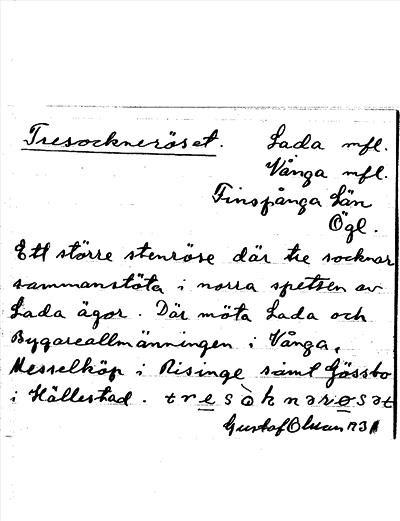 Tresockneröset. Lada mfl.
Vånga mfl.
Finspånga Län
Ögl.
Ett större stenröse där tre socknar
sammanstöta i norra spetsen av
Lada ägor. Där möta Lada och
Bygareallmänningen i Vånga,
Messelköp i Risinge samt Gässbo
i Hällestad. tresòknərøsət
Gustaf Olsson 1931